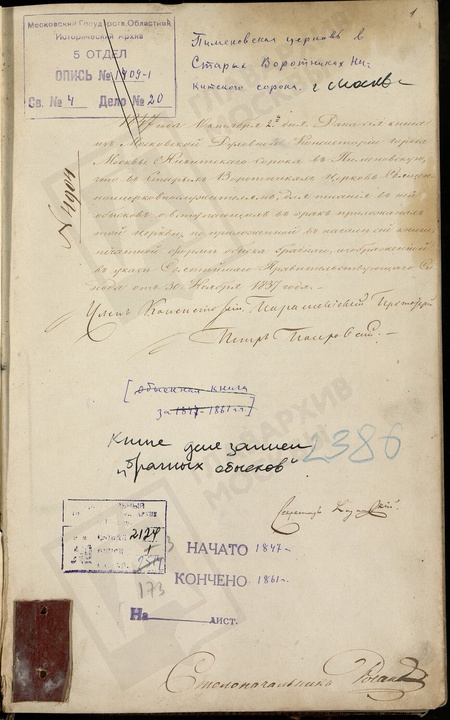 1
Московский Государств. Областной
Исторический Архив
5 ОТДЕЛ
ОПИСЬ № 1909-1
Св. № 4 Дело № 20
Пименовская церковь в
Старых Воротниках Ни-
китского сорока. г. Москв
1847 года Октября 2го дня. Дана сия книга
изъ Московской Духовной Консисторіи города
Москвы Никитскаго сорока въ Пименовскую,
что въ Старыхъ Воротникахъ Церковь Священ-
ноцерковнослужителямъ, для писанія въ ней
обысковъ о вступающихъ въ бракъ прихожанахъ
той церкви, по приложенной въ начале сей книги,
печатной форме
въ указе Святейшаго Правительствующаго Си-
нода отъ 30 Ноября 1837 года.
Членъ Консисторіи, Протоіерей
Петръ Покровскій.
N 4904
[обыскная книга
за 1847-1861 гг.]
Книга для записи
"брачных обысков"
2386
Секретарь
2129
1
173
НАЧАТО 1847 г.
КОНЧЕНО 1861 г.
На лист.
Столоначальникъ
ГЛАВАРХИВ
МОСКВЫ